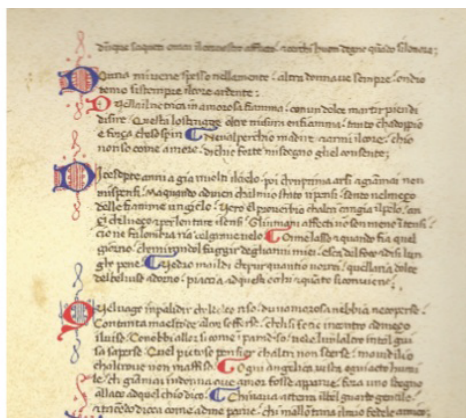 dũque saqueti omai e cerchi huom degno quãdo si lonora;
Donna mi uene spesso nella mente . altra donna ue sempre . ondio
temo si stempre il core ardente :
Quella il nutrica in amorosa fiamma . con un dolce martir pien di
disire . Questa lo strugge oltre misura enfiamma . tanto cha doppio
e força chel sospiri . Ne ual perchio madire . et armi il core . chio
non so come amore . di che forte mi sdegno gliel consente;
Dicesepte anni a gia riuolto il cielo . poi chen prima arsi e giamai non
mi spensi . Ma quando aduien chal mio stato ripensi . sento nel meço
delle fiamme un gielo . Vero e il prouerbio chaltri cangia il pelo . an
ci chel ueço . per lentare i sensi . Glihumani affecti non son meno intensi
cio ne fa lombra ria del graue uelo . Oime lasso e quando fia quel
giorno . che mirando il fuggir deglianni miei . esca del foco e di si lun
ghe pene . Vedro mai il di che pur quantio uorrei . quellaria dolce
del bel uiso adorno . piaccia a questi occhi e quanto si conuene;
Quel uago impalidir chel dolce riso . dun amorosa nebbia ricoperse .
Con tanta maestade al cor sofferse . che li si fece incontro a meço
il uiso . Conobbi allor si come in paradiso . uede lun laltro in tal gui
sa saperse . Quel pietoso pensier chaltri non scerse . ma uidilio
chaltroue non maffiso . Ogni angelica uista ogni acto humi
le . che giamai in donna oue amor fosse apparue . fora uno sdegno
allato a quel chio dico . Chinaua a terra il bel guardo gentile .
e tacendo dicea come a me parue . chi mallontana il mio fedele amico